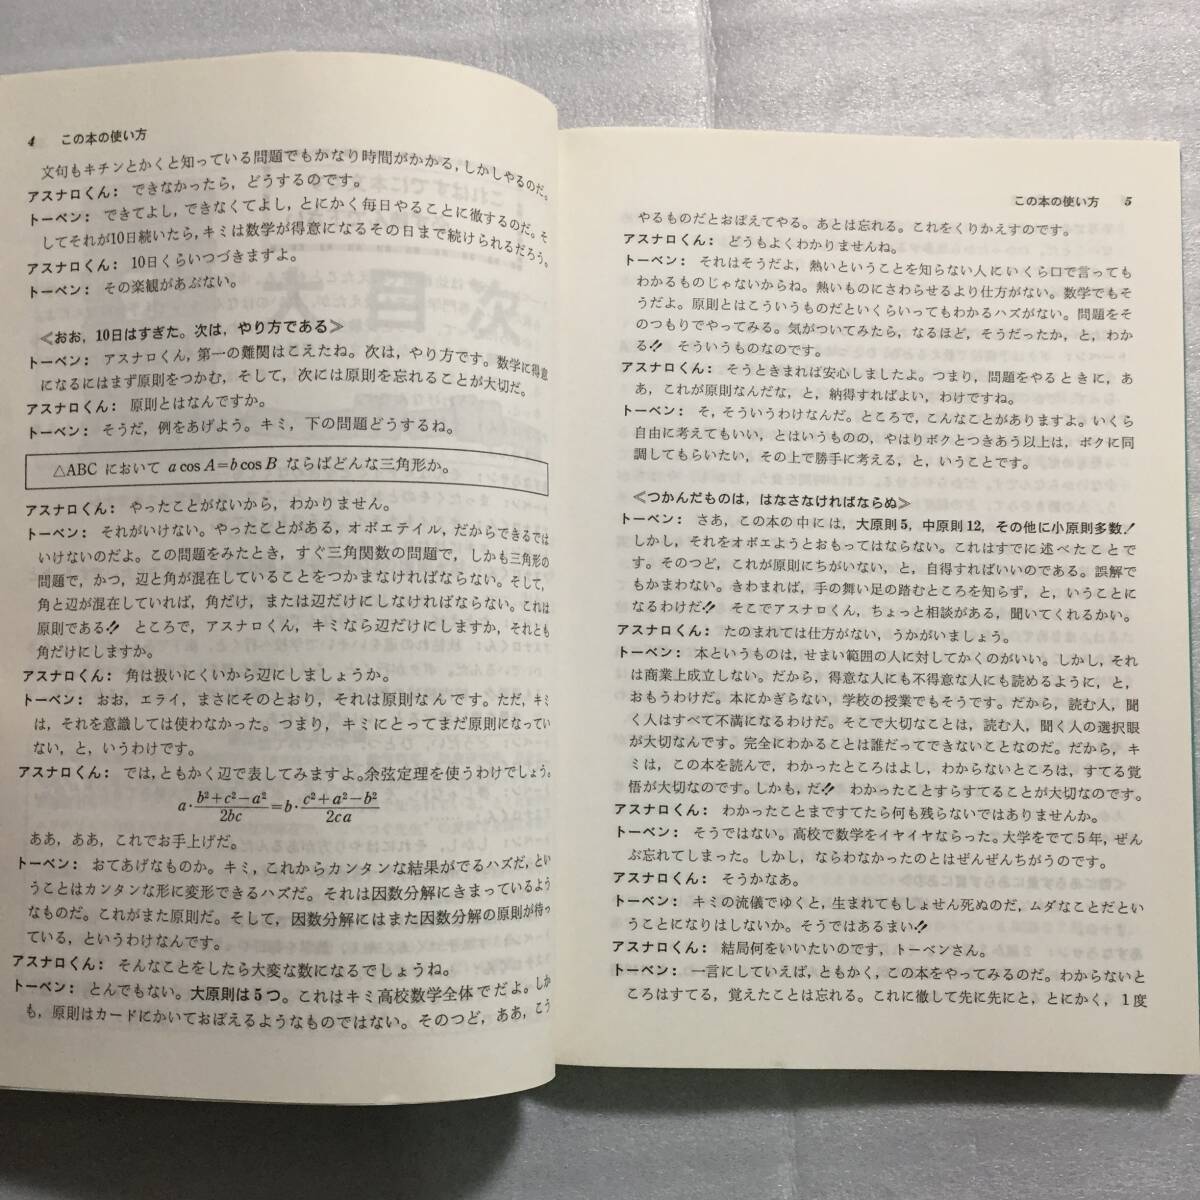 4 この本の使い方
文句もキチンとかくと知っている問題でもかなり時間がかかる,しかしやるのだ。
アスナロくん: できなかったら,どうするのです。
トーベン: できてよし,できなくてよし,とにかく毎日やることに徹するのだ。そ
してそれが10日続いたら,キミは数学が得意になるその日まで続けられるだろう。
アスナロくん: 10日くらいつづきますよ。
トーベン: その楽観があぶない。
≪おお,10日はすぎた。次は,やり方である≫
トーベン: アスナロくん,第一の難関はこえたね。次は,やり方です。数学に得意
になるにはまず原則をつかむ,そして,次には原則を忘れることが大切だ。
アスナロくん: 原則とはなんですか。
トーベン: そうだ,例をあげよう。キミ,下の問題どうするね。
△ABC において a cos A=b cos B ならばどんな三角形か。
アスナロくん: やったことがないから,わかりません。
トーベン: それがいけない。やったことがある,オボエテイル,だからできるでは
いけないのだよ。この問題をみたとき,すぐ三角関数の問題で,しかも三角形の
問題で,かつ,辺と角が混在していることをつかまなければならない。そして,
角と辺が混在していれば,角だけ,または辺だけにしなければならない。これは
原則である!! ところで,アスナロくん,キミなら辺だけにしますか,それとも
角だけにしますか。
アスナロくん: 角は扱いにくいから辺にしましょうか。
トーベン: おお,エライ,まさにそのとおり,それは原則なんです。ただ,キミ
は,それを意識しては使わなかった。つまり,キミにとってまだ原則になってい
ない,と,いうわけです。
アスナロくん: では,ともかく辺で表してみますよ。余弦定理を使うわけでしょう。
a·(b²+c²−a²)/2bc=b·(c²+a²−b²)/2ca
ああ,ああ,これでお手上げだ。
トーベン: おてあげなものか。キミ,これからカンタンな結果がでるハズだ,とい
うことはカンタンな形に変形できるハズだ。それは因数分解にきまっているよう
なものだ。これがまた原則だ。そして,因数分解にはまた因数分解の原則が待っ
ている,というわけなんです。
アスナロくん: そんなことをしたら大変な数になるでしょうね。
トーベン: とんでもない。大原則は5つ。これはキミ高校数学全体でだよ。しか
も,原則はカードにかいておぼえるようなものではない。そのつど,ああ,こう
この本の使い方 5
やるものだとおぼえてやる。あとは忘れる。これをくりかえすのです。
アスナロくん: どうもよくわかりませんね。
トーベン: それはそうだよ,熱いということを知らない人にいくら口で言っても
わかるものじゃないからね。熱いものにさわらせるより仕方がない。数学でもそ
うだよ。原則とはこういうものだといくらいってもわかるハズがない。問題をそ
のつもりでやってみる。気がついてみたら,なるほど,そうだったか,と,わか
る!! そういうものなのです。
アスナロくん: そうときまれば安心しましたよ。つまり,問題をやるときに,あ
あ,これが原則なんだな,と,納得すればよい,わけですね。
トーベン: そ,そういうわけなんだ。ところで,こんなことがありますよ。いくら
自由に考えてもいい,とはいうものの,やはりボクとつきあう以上は,ボクに同
調してもらいたい,その上で勝手に考える,と,いうことです。
≪つかんだものは,はなさなければならぬ≫
トーベン: さあ,この本の中には,大原則5,中原則12,その他に小原則多数!
しかし,それをオボエようとおもってはならない。これはすでに述べたことで
す。そのつど,これが原則にちがいない,と,自得すればいいのである。誤解で
もかまわない。きわまれば,手の舞い足の踏むところを知らず,と,いうことに
なるわけだ!! そこでアスナロくん,ちょっと相談がある,聞いてくれるかい。
アスナロくん: たのまれては仕方がない,うかがいましょう。
トーベン: 本というものは,せまい範囲の人に対してかくのがいい。しかし,それ
は商業上成立しない。だから,得意な人にも不得意な人にも読めるように,と,
おもうわけだ。本にかぎらない,学校の授業でもそうです。だから,読む人,聞
く人はすべて不満になるわけだ。そこで大切なことは,読む人,聞く人の選択眼
が大切なんです。完全にわかることは誰だってできないことなのだ。だから,キ
ミは,この本を読んで,わかったところはよし,わからないところは,すてる覚
悟が大切なのです。しかも,だ!! わかったことすらすてることが大切なのです。
アスナロくん: わかったことまですてたら何も残らないではありませんか。
トーベン: そうではない。高校で数学をイヤイヤならった。大学をでて5年,ぜん
ぶ忘れてしまった。しかし,ならわなかったのとはぜんぜんちがうのです。
アスナロくん: そうかなあ。
トーベン: キミの流儀でゆくと,生まれてもしょせん死ぬのだ,ムダなことだとい
うことになりはしないか。そうではあるまい!!
アスナロくん: 結局何をいいたいのです,トーベンさん。
トーベン: 一言にしていえば,ともかく,この本をやってみるのだ。わからないと
ころはすてる,覚えたことは忘れる。これに徹して先に先にと,とにかく,1度